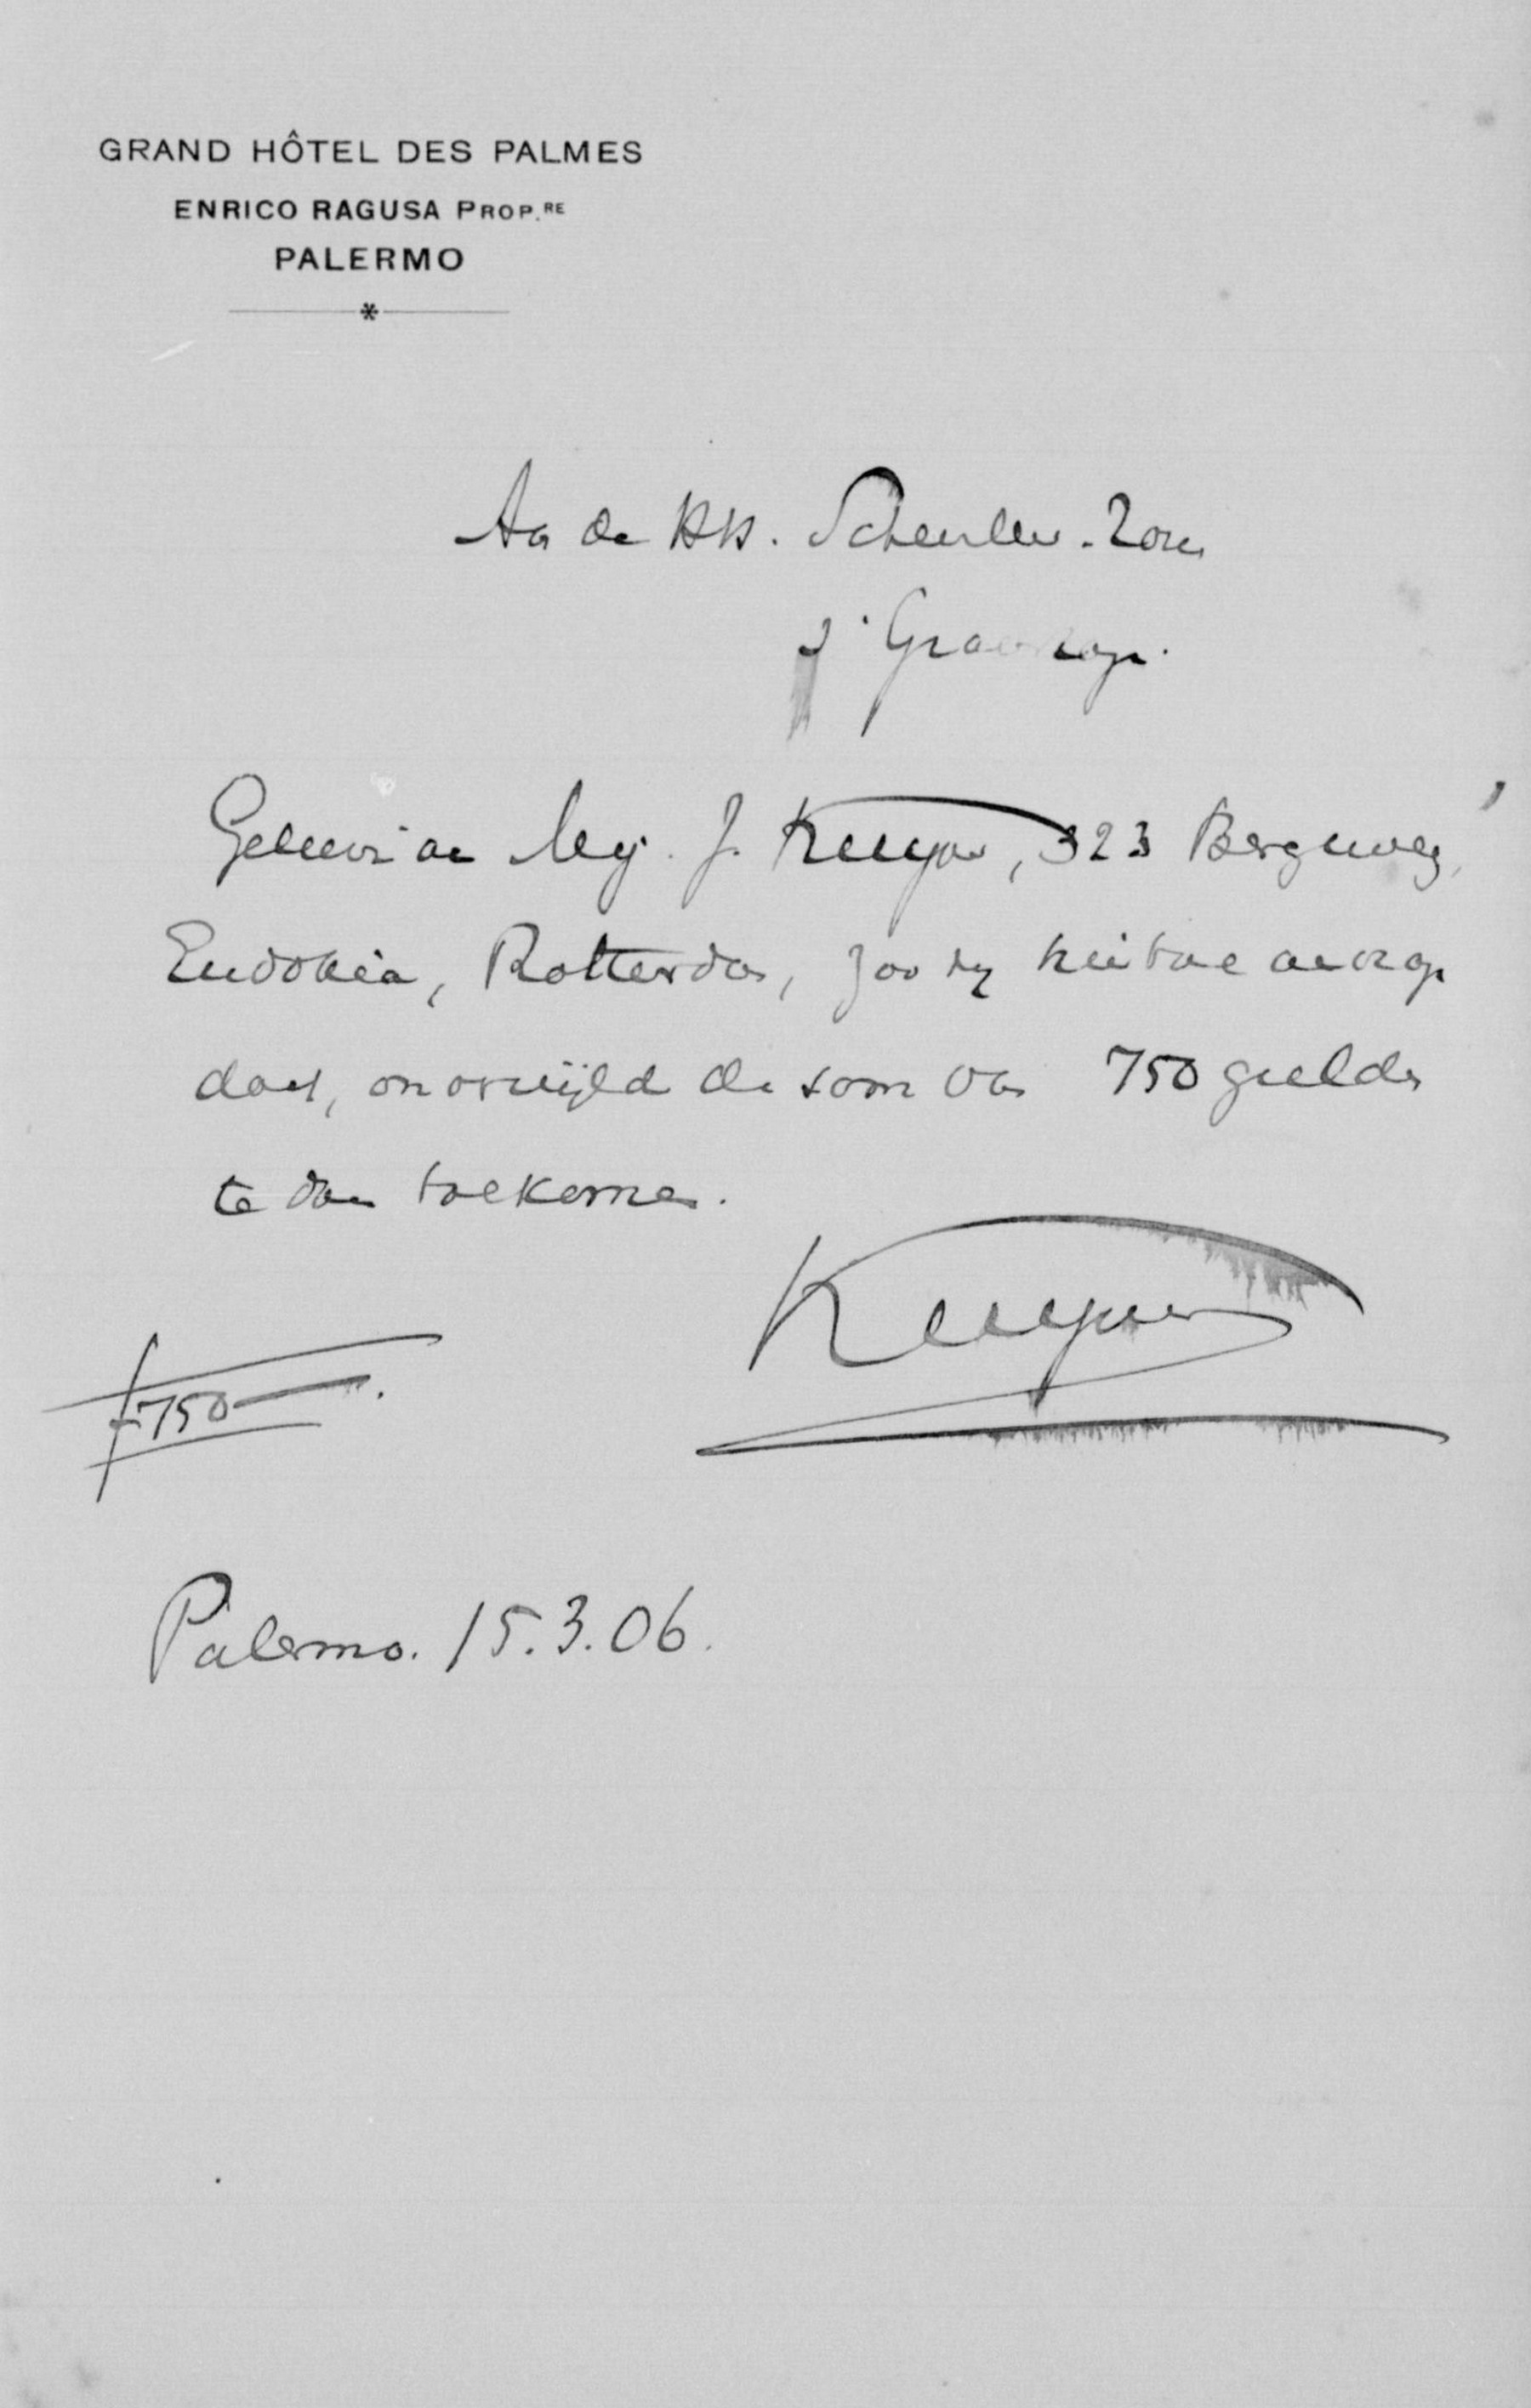 GRAND HÔTEL DES PALMES
ENRICO RAGUSA PROP.RE
PALERMO
Aan de HH. Scheurleer & Zonen
s' Gravenhage.
Gelieve aan Mej. J. Kuyper, 323 Bergweg,
Eudokia, Rotterdam, zoo zij hiertoe aanvrage
doet, onverwijld de som van 750 gulden
te doen toekomen.
Kuyper
f 750
Palermo. 15.3.06.